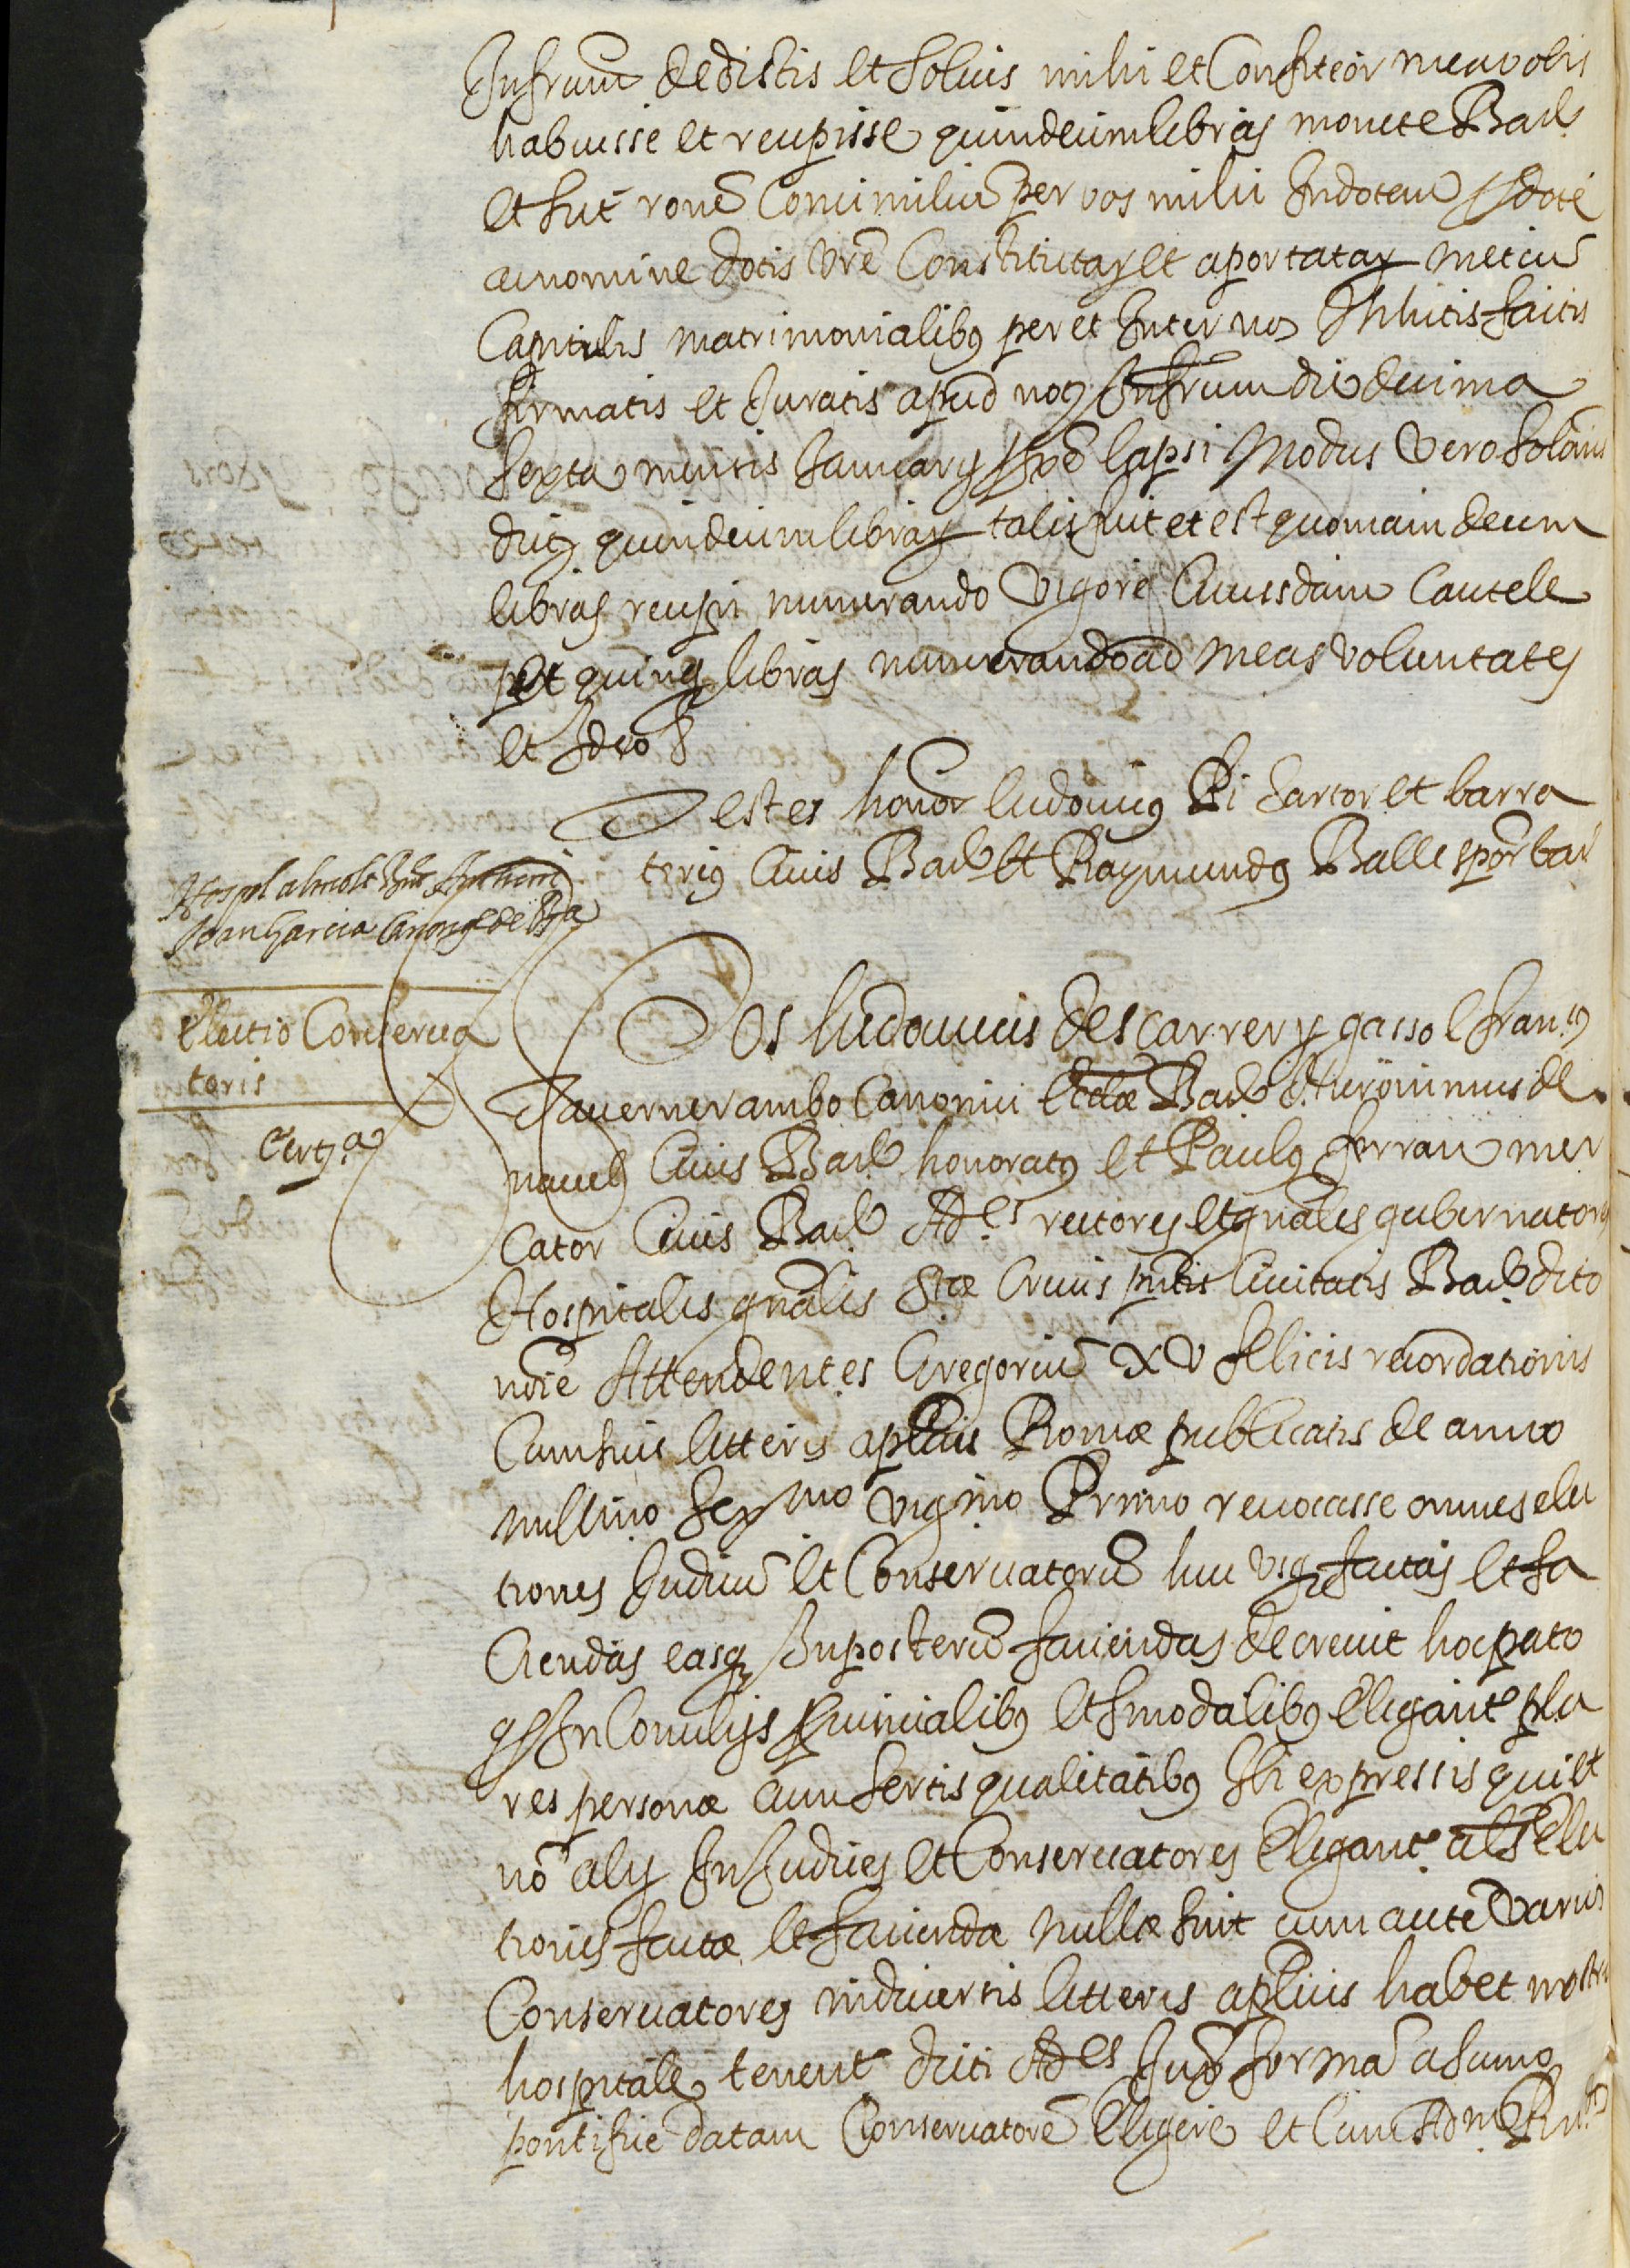 Infrum dedistis et solvis mihi et Confiteor me a vobis
habuisse et recepisse quindecim libras monete Barͤ
et sut rone Consimiliu per vos mihi In dotem et dote
ac nomine dotis vrẽ Constitutaȝ et aportataȝ me cũ
Capitulis matrimonialibꝰ per et Inter nos Inhitis factis
firmatis et Juratis apud noȝ Infrum die decima
sexta mensis Januarij pxẽ lapsi Modus vero solõnis
dictaȝ quindecim libraȝ talis fuit et est quoniam decem
libras recepi numerando vigore Cuiusdam Cautele
et quinqȝ libras numerando ad meas voluntates
et Ideo &
Testes honor ludovicꝰ Pi sartor et barra
teriꝰ Civis Barͤ et Raymundꝰ Balle sportar
Hospl
Joan Garcia Canonge de Bͣ
Electio Conserva
toris
Certͣ
Nos ludovicus descarrer y gassol franͨͧ
Taverner ambo Canonici Ecclæ Barͤ Hieronimus de
navel Civis Barͤ honoratꝰ et Paulꝰ ferran mer
Cator Civis Barͤ Adͤˢ rectores et gnãles gubernatores
Hospitalis gnãlis Stæ Crucis pñtis Civitatis Barͤ dito
nõie Attendentes Gregoriũ XV felicis recordationis
Cum suis litteris aplicis Romæ publicatis de anno
millmo sexmo vigmo Primo revocasse omnes elec
tiones Judicũ et Conservatorũ huc usqȝ factas et fa
Ciendas easqȝ Inposterũ faciendas decrevit hoc pacto
qͩ In Conciliis provincialibꝰ et sinodalibꝰ Elegant plu
res personæ cum sertis qualitatibꝰ Ibi expressis qui et
nõ alij In Judices et Conservatores Elegant als Elec
tiones factæ et facienda nullæ sint cum autẽ varios
Conservatores in diversis litteris aplicis habet nostrũ
hospitale tenent dicti Adͤˢ Juxᵃ formã a sumo
pontifice datam Conservatorẽ Eligere et Cum Adm Rndͦ